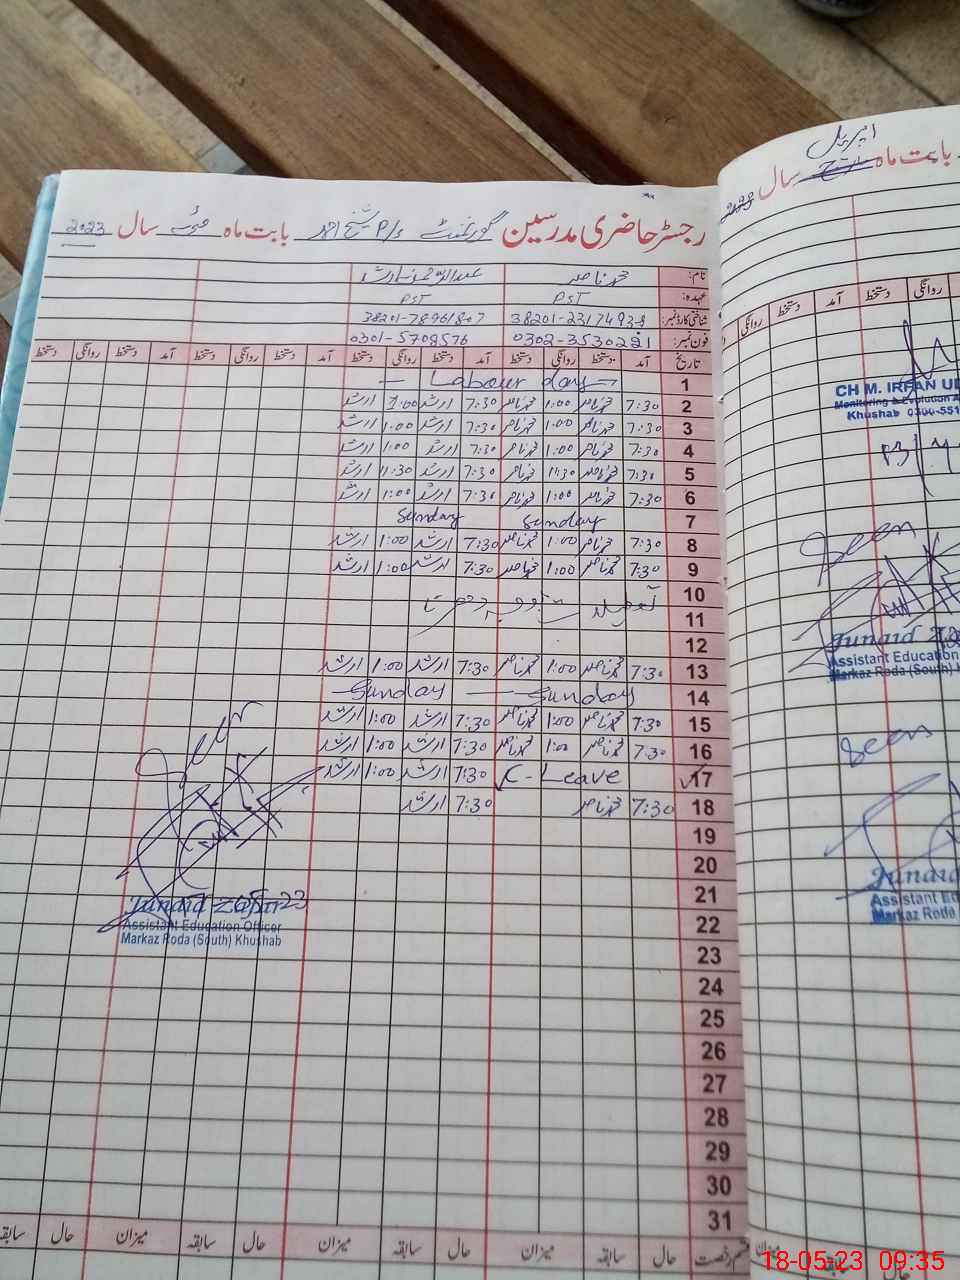 رجسٹر حاضری مدرسین گورنمنٹ P/S شیخ احمد بابت ماہ مئی سال 2023
نام: محمد ناصر عبدالرحمن ارشد
عہدہ: PST PST
شناختی کارڈ نمبر: 38201-2317493-9 38201-7896180-7
فون نمبر: 0302-3530291 0301-5709576
تاریخ آمد دستخط روانگی دستخط آمد دستخط روانگی دستخط آمد دستخط روانگی دستخط آمد دستخط روانگی دستخط
1 Labour day
2 7:30 محمد ناصر 1:00 محمد ناصر 7:30 ارشد 1:00 ارشد
3 7:30 محمد ناصر 1:00 محمد ناصر 7:30 ارشد 1:00 ارشد
4 7:30 محمد ناصر 1:00 محمد ناصر 7:30 ارشد 1:00 ارشد
5 7:30 محمد ناصر 11:30 محمد ناصر 7:30 ارشد 11:30 ارشد
6 7:30 محمد ناصر 1:00 محمد ناصر 7:30 ارشد 1:00 ارشد
7 Sunday Sunday
8 7:30 محمد ناصر 1:00 محمد ناصر 7:30 ارشد 1:00 ارشد
9 7:30 محمد ناصر 1:00 محمد ناصر 7:30 ارشد 1:00 ارشد
10
11
12
13 7:30 محمد ناصر 1:00 محمد ناصر 7:30 ارشد 1:00 ارشد
14 Sunday Sunday
15 7:30 محمد ناصر 1:00 محمد ناصر 7:30 ارشد 1:00 ارشد
16 7:30 محمد ناصر 1:00 محمد ناصر 7:30 ارشد 1:00 ارشد
17 C-Leave 7:30 ارشد 1:00 ارشد
18 7:30 محمد ناصر 7:30 ارشد
19
20
21
22
23
24
25
26
27
28
29
30
31
Seen
Junaid Zafar
Assistant Education Officer
Markaz Roda (South) Khushab
قسم رخصت حال سابقہ میزان حال سابقہ میزان حال سابقہ میزان حال سابقہ
اپریل
بابت ماہ سال
روانگی دستخط آمد دستخط روانگی
CH M. IRFAN UD
Monitoring & Evolution A
Khushab 0300-551
Seen
Junaid Za
Assistant Education
Markaz Roda (South) K
Seen
Junaid
Assistant Ed
Markaz Roda
میزان سابقہ حال
18-05-23 09:35